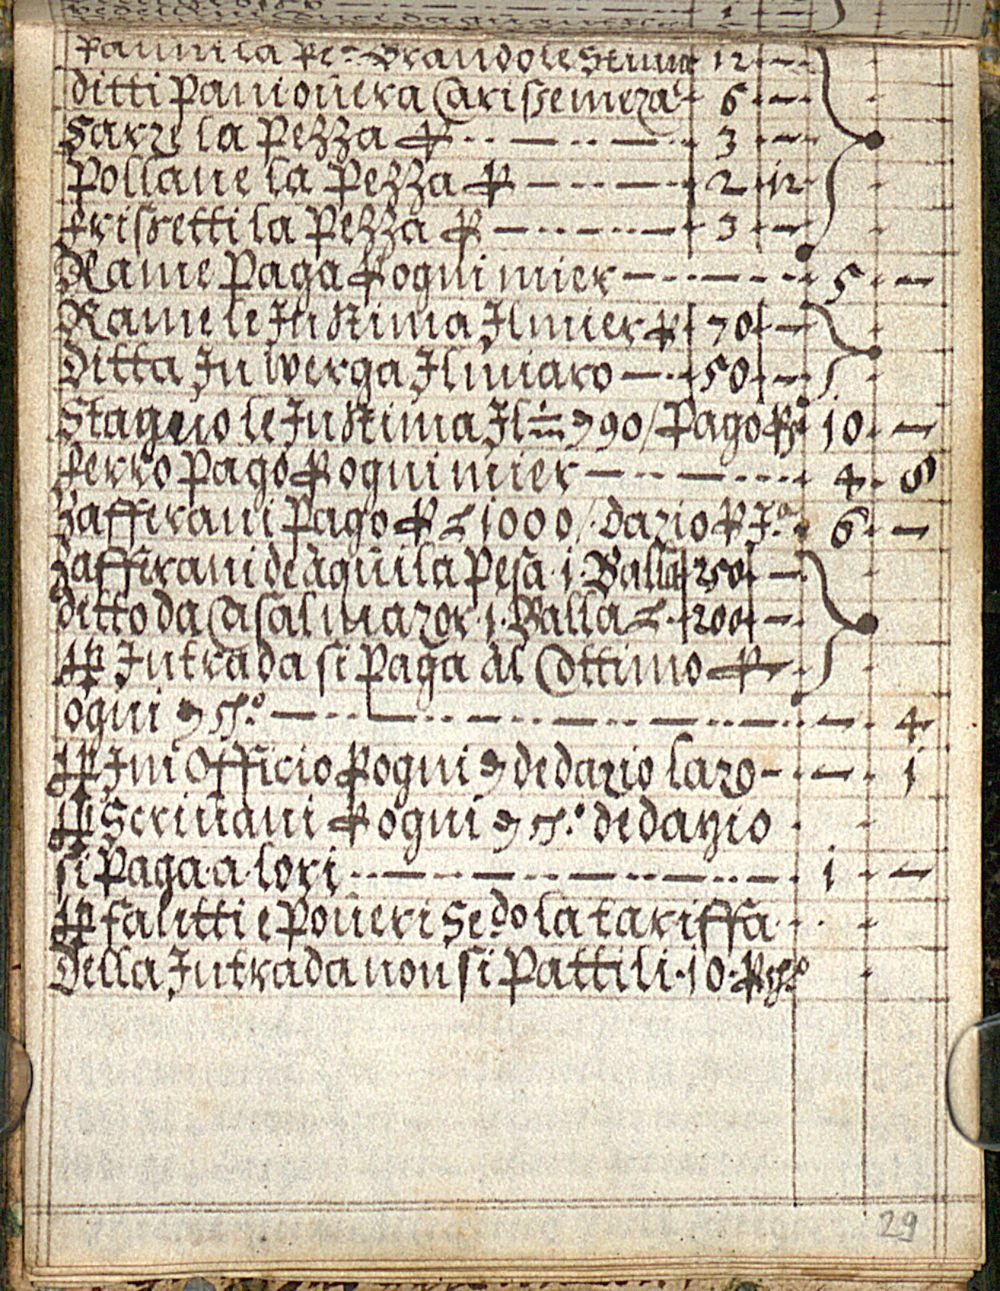 Pannila Pe Grandole Stima 12
ditti Pani ouera Carissemeza 6
Sarze la Pezza 3
Pollane la Pezza 2 12
frissetti la Pezza 3
Rame Paga ogni mier 5
Rame le In Stima Il mier 70
Ditta In Werga Il miaro 50
Stagnio le In Stima Il 90 / Pago 10
ferro Pago ogni mier 4 8
Zaffirani Pago 1000 / dazio 6
Zaffirani de aquila Pesa 1 Balla 250
ditto da Casal mazor 1 Balla 200
Intrada si Paga al Cottimo
ogni 4
Ini Officio ogni de dazio lazo 1
Scrivani ogni de dazio
si Paga a lori 1
falitti e Poueri Sedo la tariffa
Della Intrada non si Patti li 10
29